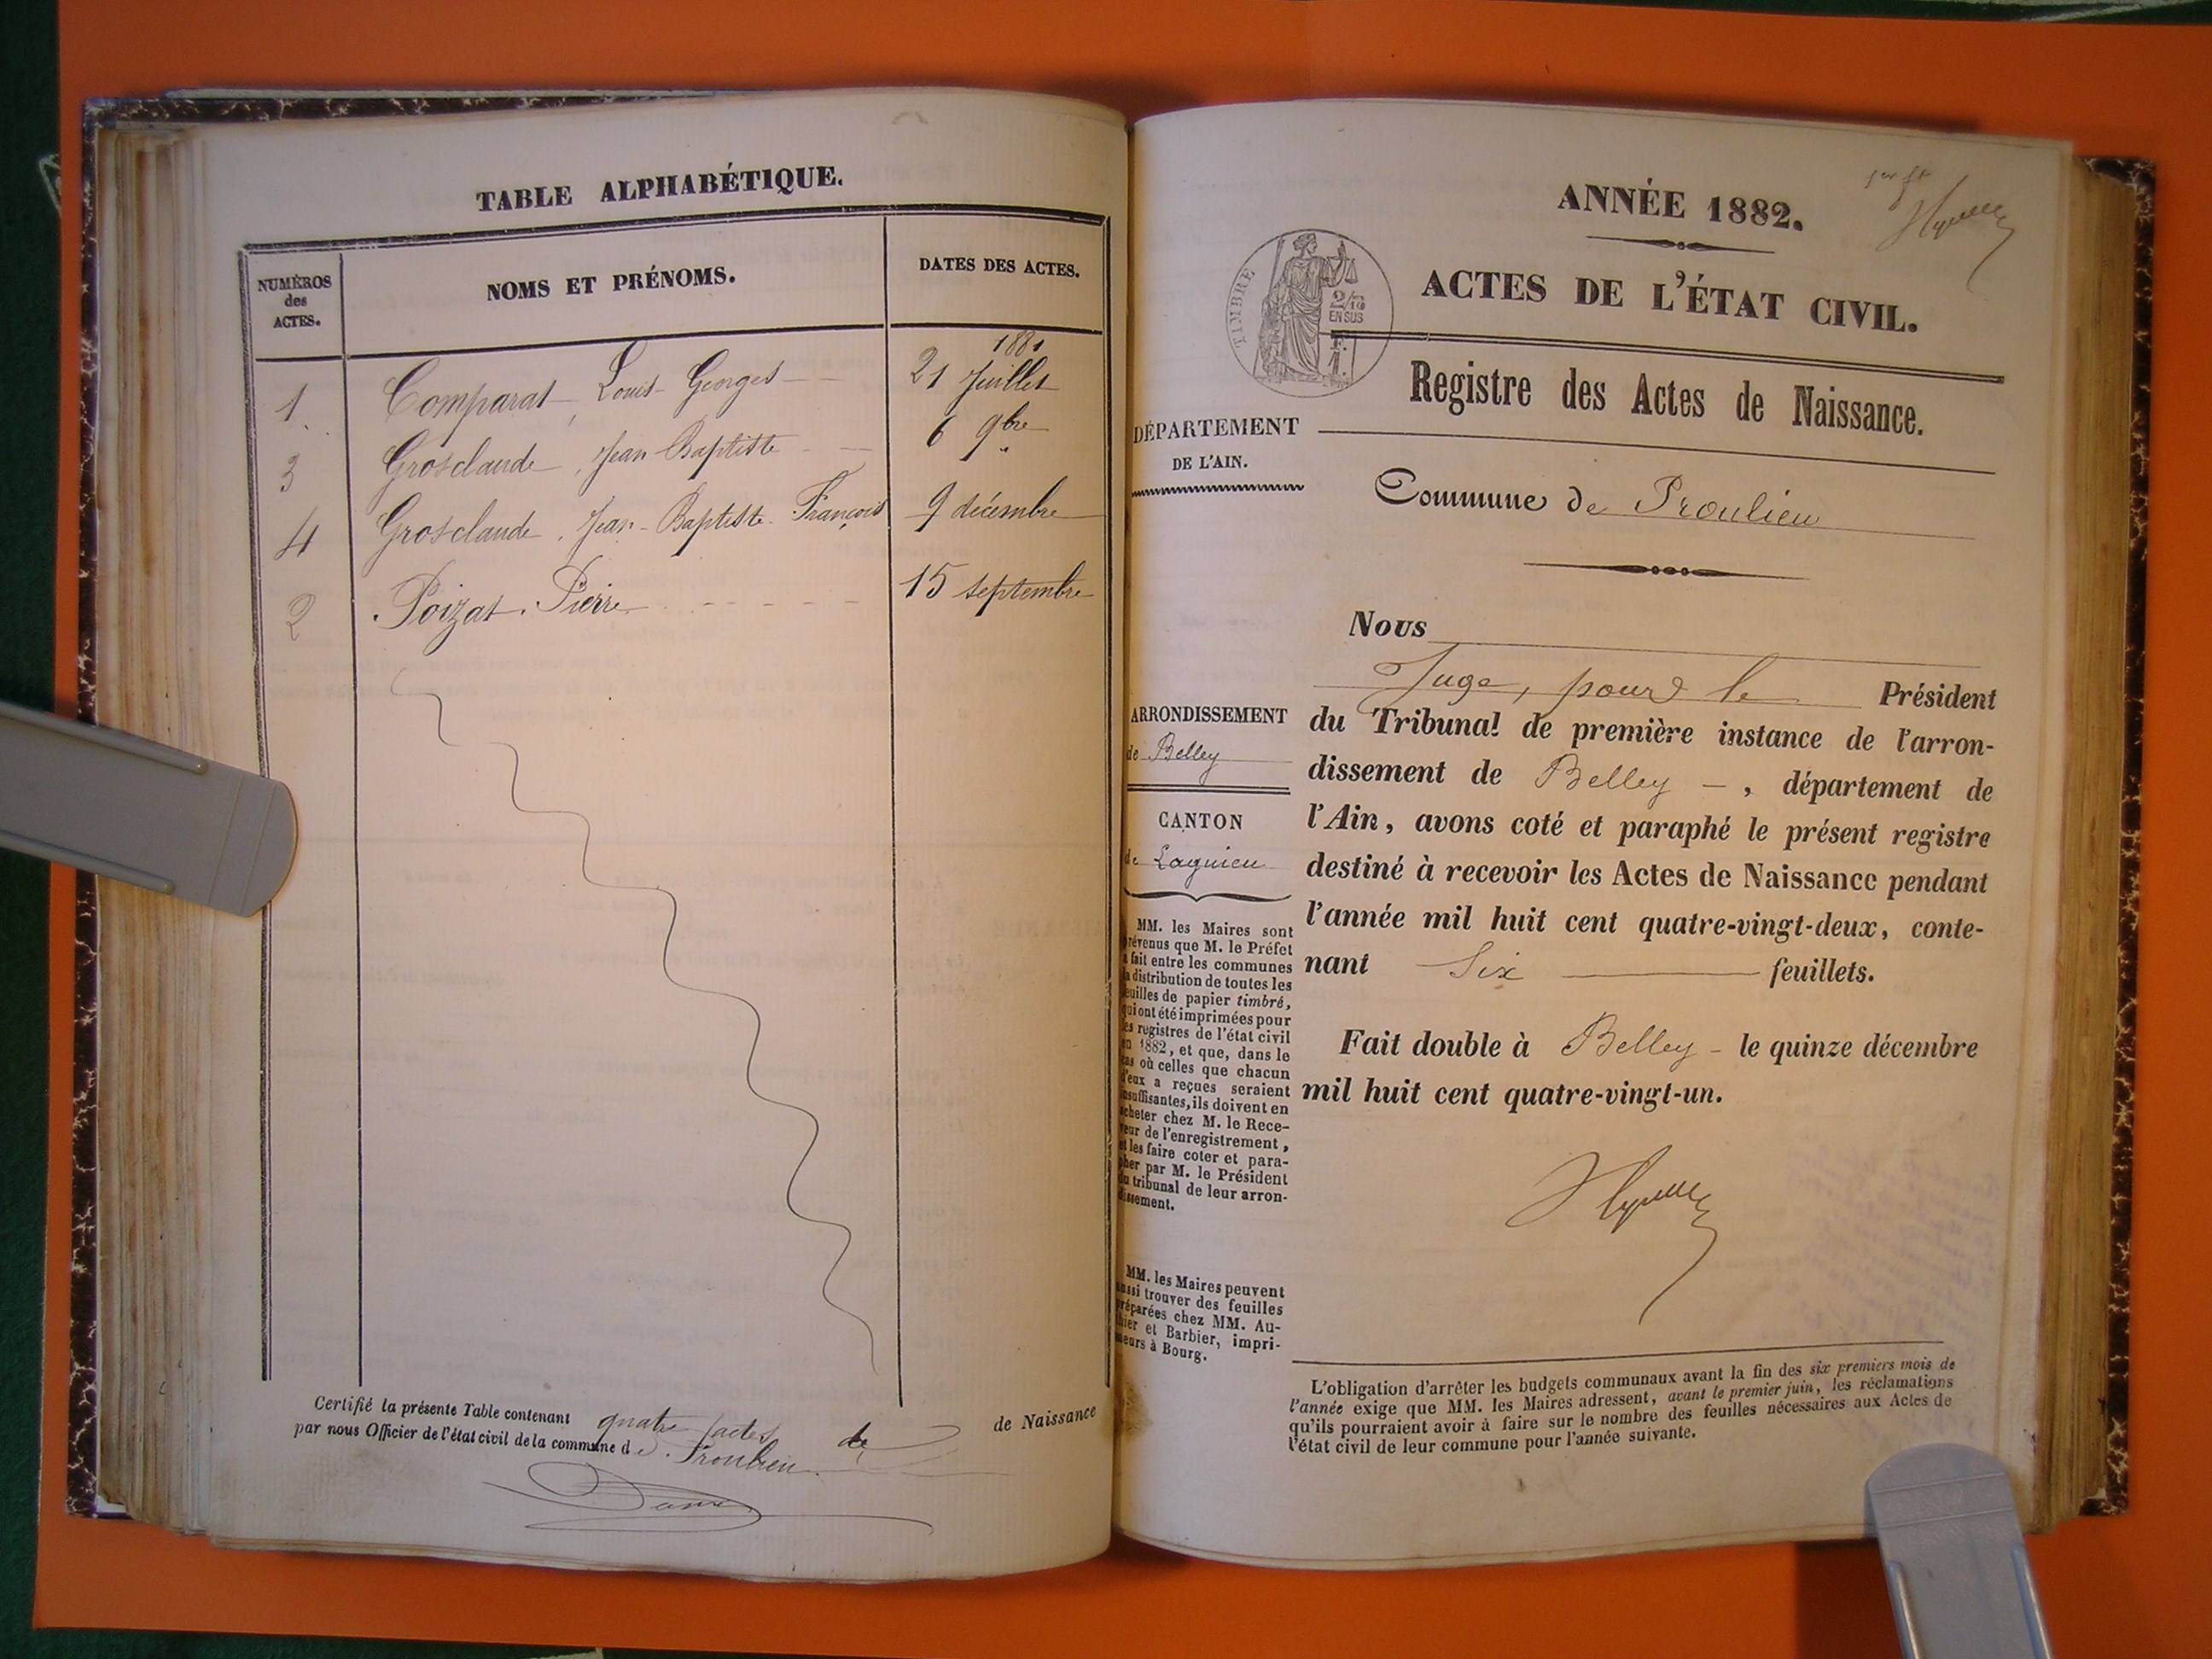 TABLE ALPHABÉTIQUE.
NUMÉROS
des
ACTES.
NOMS ET PRÉNOMS.
DATES DES ACTES.
1881
1. Comparat Louis Georges 21 Juillet
3 Grosclaude, Jean Baptiste 6 9bre
4 Grosclaude, Jean-Baptiste-François 9 décembre
2 Poizat. Pierre 15 septembre
Certifié la présente Table contenant quatre actes de de Naissance
par nous Officier de l'état civil de la commune de Proulieu
ANNÉE 1882.
TIMBRE
2/10
EN SUS
F.
1.
ACTES DE L'ÉTAT CIVIL.
Registre des Actes de Naissance.
DÉPARTEMENT
DE L'AIN.
Commune de Proulieu
ARRONDISSEMENT
de Belley
CANTON
de Lagnieu
MM. les Maires sont
prévenus que M. le Préfet
a fait entre les communes
la distribution de toutes les
feuilles de papier timbré,
qui ont été imprimées pour
les registres de l'état civil
en 1882, et que, dans le
cas où celles que chacun
d'eux a reçues seraient
insuffisantes, ils doivent en
acheter chez M. le Rece-
veur de l'enregistrement,
et les faire coter et para-
pher par M. le Président
du tribunal de leur arron-
dissement.
MM. les Maires peuvent
aussi trouver des feuilles
préparées chez MM. Au-
thier et Barbier, impri-
meurs à Bourg.
Nous
Juge, pour le Président
du Tribunal de première instance de l'arron-
dissement de Belley - , département de
l'Ain, avons coté et paraphé le présent registre
destiné à recevoir les Actes de Naissance pendant
l'année mil huit cent quatre-vingt-deux, conte-
nant Six feuillets.
Fait double à Belley - le quinze décembre
mil huit cent quatre-vingt-un.
L'obligation d'arrêter les budgets communaux avant la fin des six premiers mois de
l'année exige que MM. les Maires adressent, avant le premier juin, les réclamations
qu'ils pourraient avoir à faire sur le nombre des feuilles nécessaires aux Actes de
l'état civil de leur commune pour l'année suivante.